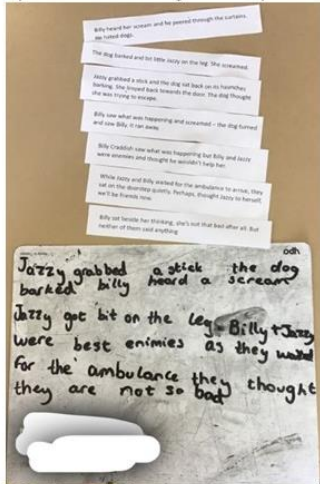 Billy heard her scream and he peered through the curtains.
He hated dogs.
The dog barked and bit little Jazzy on the leg. She screamed.
Jazzy grabbed a stick and the dog sat back on its haunches
barking. She limped back towards the door. The dog thought
she was trying to escape.
Billy saw what was happening and screamed – the dog turned
and saw Billy. It ran away.
Billy Craddish saw what was happening but Billy and Jazzy
were enemies and thought he wouldn't help her.
While Jazzy and Billy waited for the ambulance to arrive, they
sat on the doorstep quietly. Perhaps, thought Jazzy to herself,
we'll be friends now.
Billy sat beside her thinking, she's not that bad after all. But
neither of them said anything.
Jazzy grabbed a stick the dog
barked billy heard a scream
Jazzy got bit on the leg Billy + Jazzy
were best enimies as they waited
for the ambulance they thought
they are not so bad